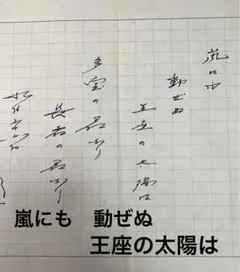 嵐にも
動ぜぬ
王座の太陽は
多宝の君なり
長者の君なり
嵐にも 動ぜぬ
王座の太陽は